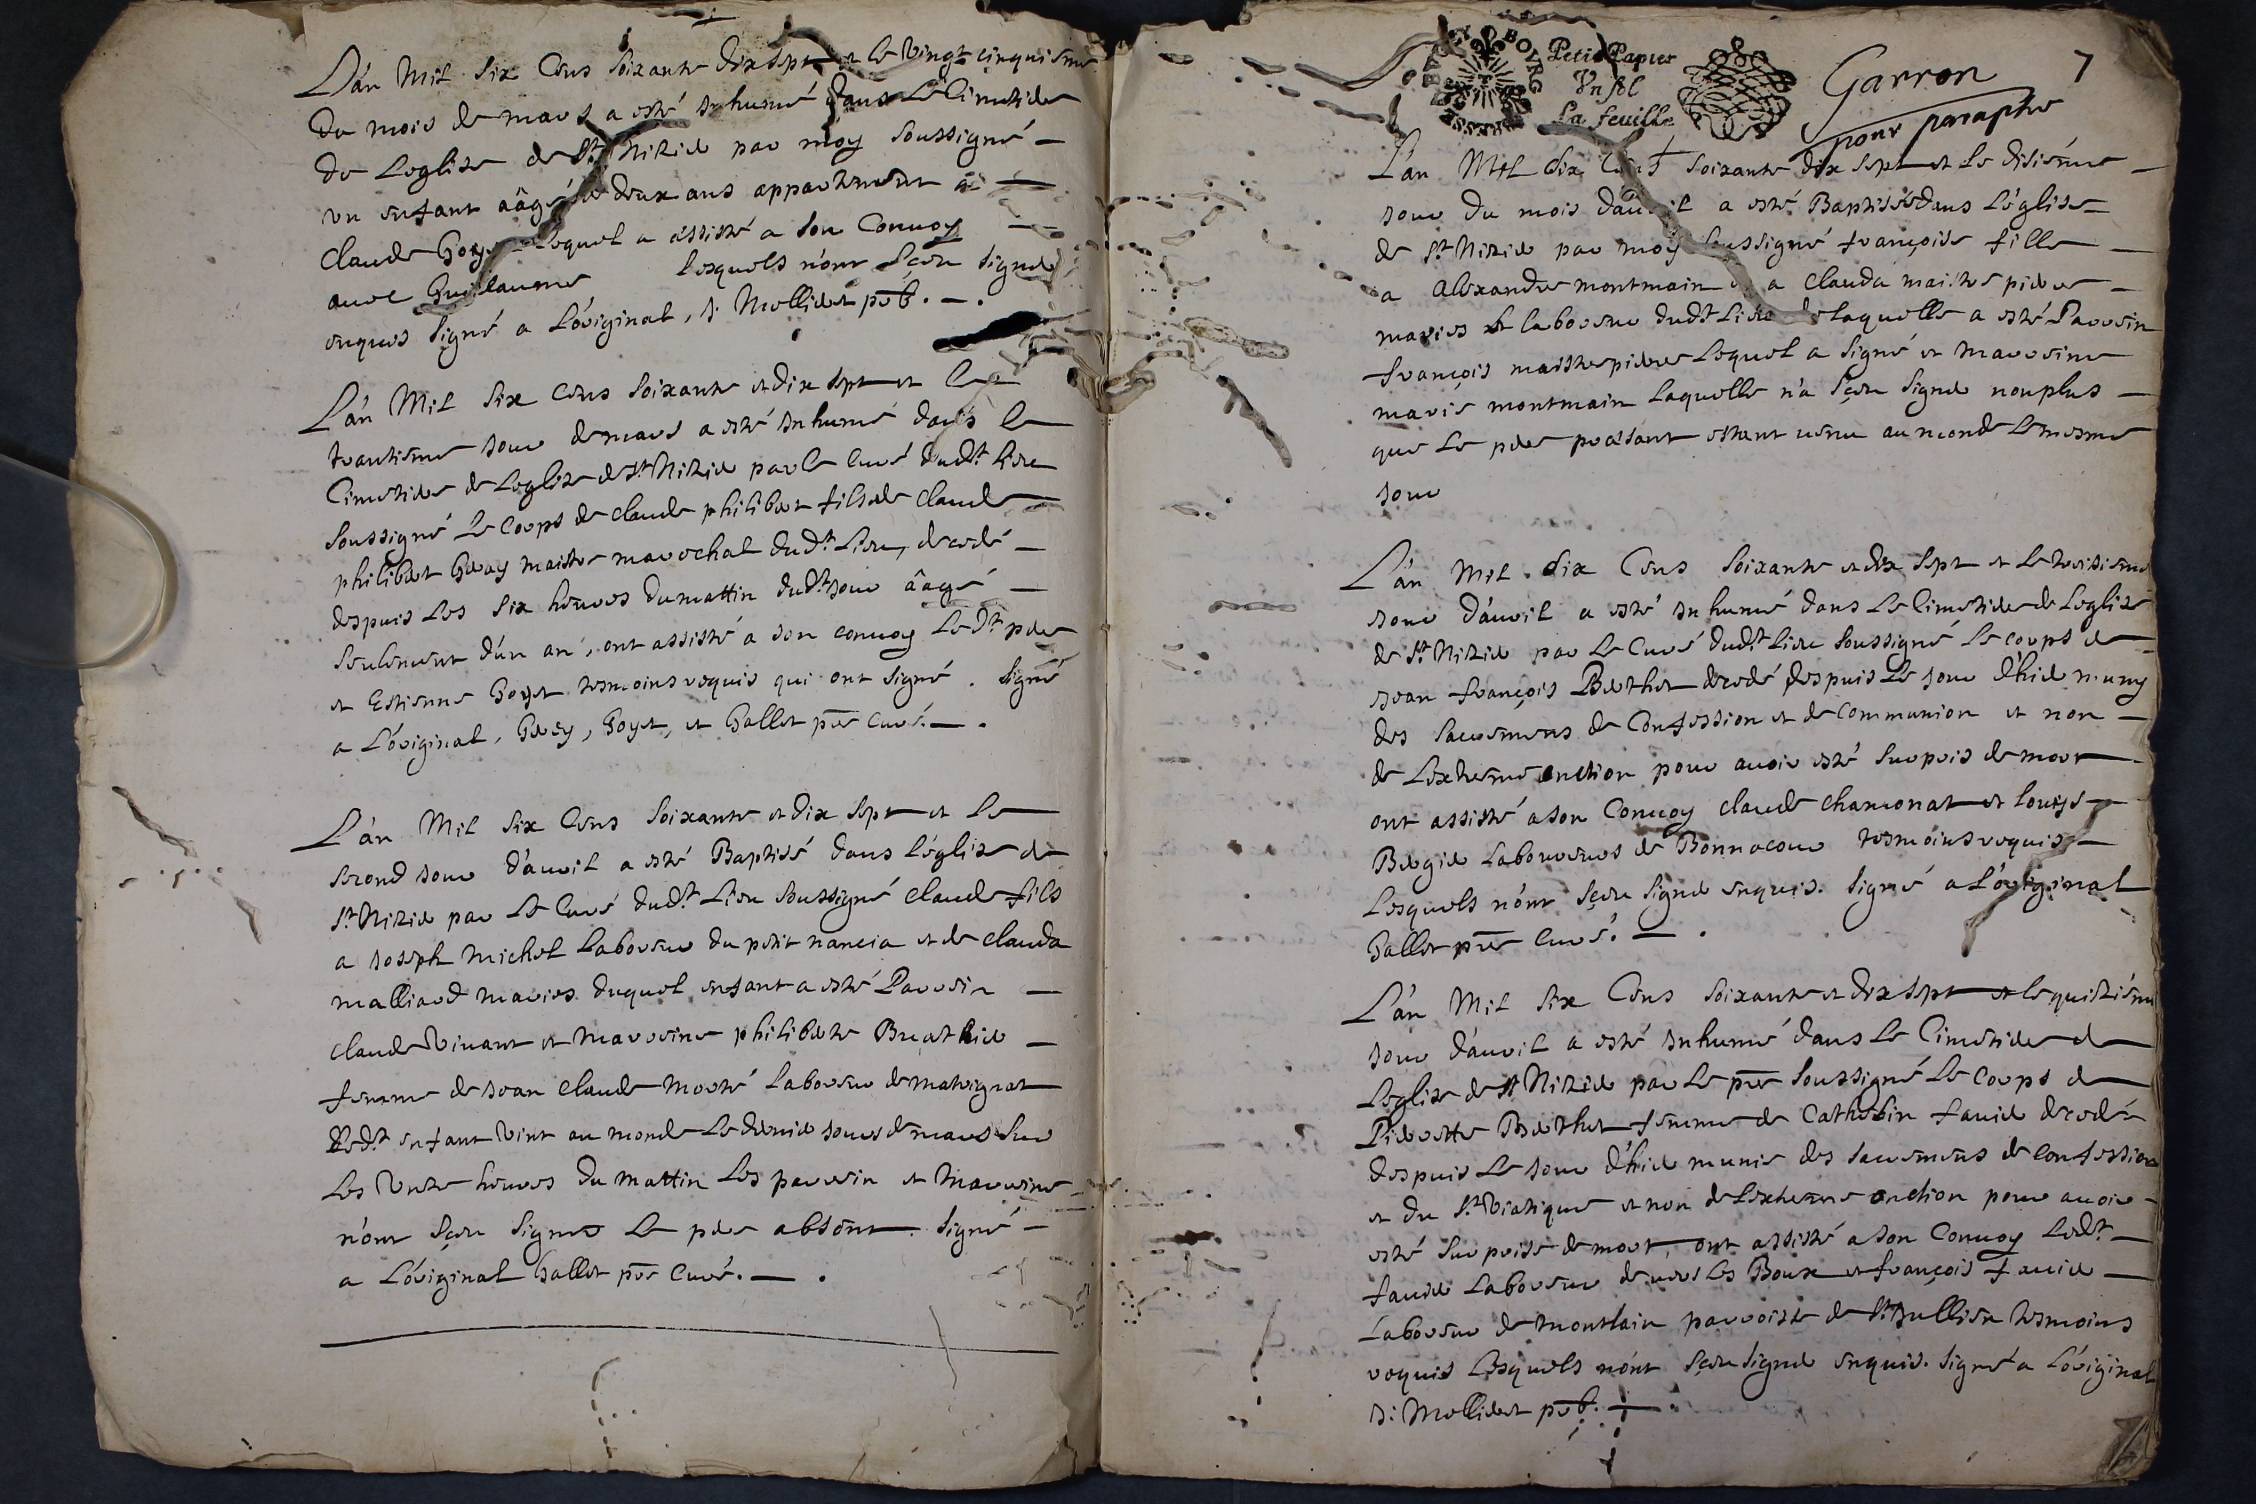 L'an Mil Six Cens Soixante dix Sept et le vingt cinquiesme
du mois de mars a esté Inhumé dans Le Cimetiere
de Leglize de St Nizier par moy Soussigné
un enfant aâgé de deux ans appartenant a
Claude Goyet Lequel a assisté a Son Convoy
avec Guillaume Lesquels n'ont Sçeu Signer
enquis Signé a L'original, J. Mollieret pbr.
L'an Mil Six Cens Soixante et dix Sept et le
trantiesme Jour de mars a esté Inhumé dans le
Cimetiere de Leglize de St Nizier par le Curé dudt lieu
Soussigné Le Corps de Claude philibert fils de Claude
philibert Gueay maistre mareschal dudt Lieu, decedé
despuis Les Six heures du mattin dudt Jour âagé
Seulement d'un an, ont assisté a Son convoy Le dt pere
et Estienne Goyet tesmoins requis qui ont Signé. Signé
a L'original, Guey, Goyet, et Gallet pre Curé.
L'an Mil Six Cens Soixante et dix Sept et Le
Second Jour d'avril a esté Baptisé dans L'eglize de
St Nizier par Le Curé dudt Lieu Soussigné Claude fils
a Joseph Michel Laboureur du petit nancia et de Clauda
malliard maries duquel enfant a esté Parrein
Claude Vivant et Marreine philiberte Breathier
femme de Jean Claude Morté Laboureur de malvignat
Ledt enfant Vint au monde Le dernier Jour de mars Sur
Les Unze heures du mattin Les parrein et Marreine
n'ont Sçeu Signer Le pere absent. Signé
a L'original Gallet pre Curé.
BRESSE BVGEY BOVRG
Petit Papier
Vn Sol
La feuille
Garron
pour paraphe
7
L'an Mil Six Cens Soixante dix Sept et Le disiéme
Jour du mois d'avril a esté Baptisée dans L'eglise
de St Nizier par moy Soussigné françoise fille
a Alexandre montmain et a Clauda maistrepierre
maries et laboureur dudt Lieu de laquelle a esté Parrein
françois maistrepierre Lequel a Signé et Marreine
marie montmain Laquelle n'a Sçeu Signer non plus
que Le pere présent estant venu au monde Le mesme
Jour
L'an Mil Six Cens Soixante et dix Sept et Le troisieme
Jour d'avril a esté Inhumé dans Le Cimetiere de Leglize
de St Nizier par Le Curé dudt Lieu Soussigné Le corps de
Jean françois Berthet decedé despuis Le Jour d'hier muny
des Sacremens de Confession et de Communion et non
de Lextreme onction pour avoir esté Surpris de mort
ont assisté a Son Convoy Claude Chamonat et louys
Bergier Laboureurs de Bonnacour tesmoins requis
Lesquels n'ont Sçeu Signer enquis. Signé a L'original
Gallet pre Curé.
L'an Mil Six Cens Soixante et dix Sept et le quiziéme
Jour d'avril a esté Inhumé dans Le Cimetiere de
Leglize de St Nizier par Le pre Soussigné Le Corps de
Pierrette Berthet femme de Catherin favier decedé
despuis Le Jour d'hier munie des Sacremens de Confession
et du St Viatique et non de lextreme onction pour avoir
esté Surprise de mort, ont assisté a Son Convoy Ledt
favier Laboureur de vers Les Boux et françois favier
Laboureur de Montlain parroisse de St Jullien tesmoins
requis Lesquels n'ont Sçeu Signer enquis. Signé a L'original
J: Mollieret pbr.